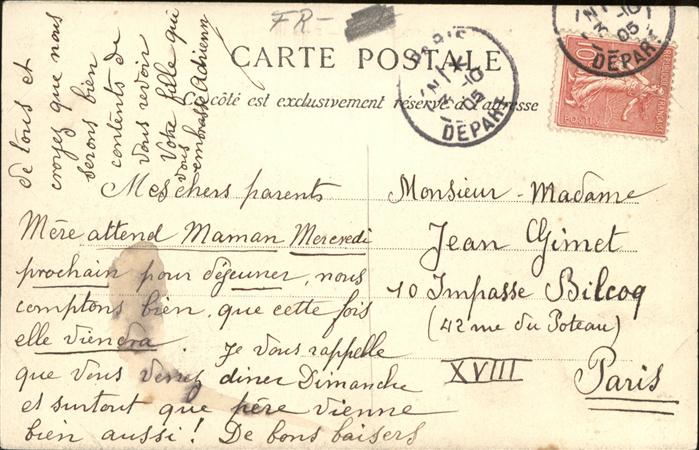 FR-
CARTE POSTALE
Ce côté est exclusivement réservé à l'adresse
PARIS
3 -10
05
DEPART
3 -10
05
DEPART
10
POSTES
Mes chers parents
Mère attend Maman Mercredi
prochain pour déjeuner, nous
comptons bien, que cette fois
elle viendra. Je vous rappelle
que vous venez diner Dimanche
et surtout que père vienne
bien aussi! De bons baisers
de tous et
croyez que nous
serons bien
contents de
vous revoir
Votre fille qui
vous
embrasse Adrienne
Monsieur - Madame
Jean Gimet
10 Impasse Bilcoq
(42 rue du Poteau)
XVIII
Paris